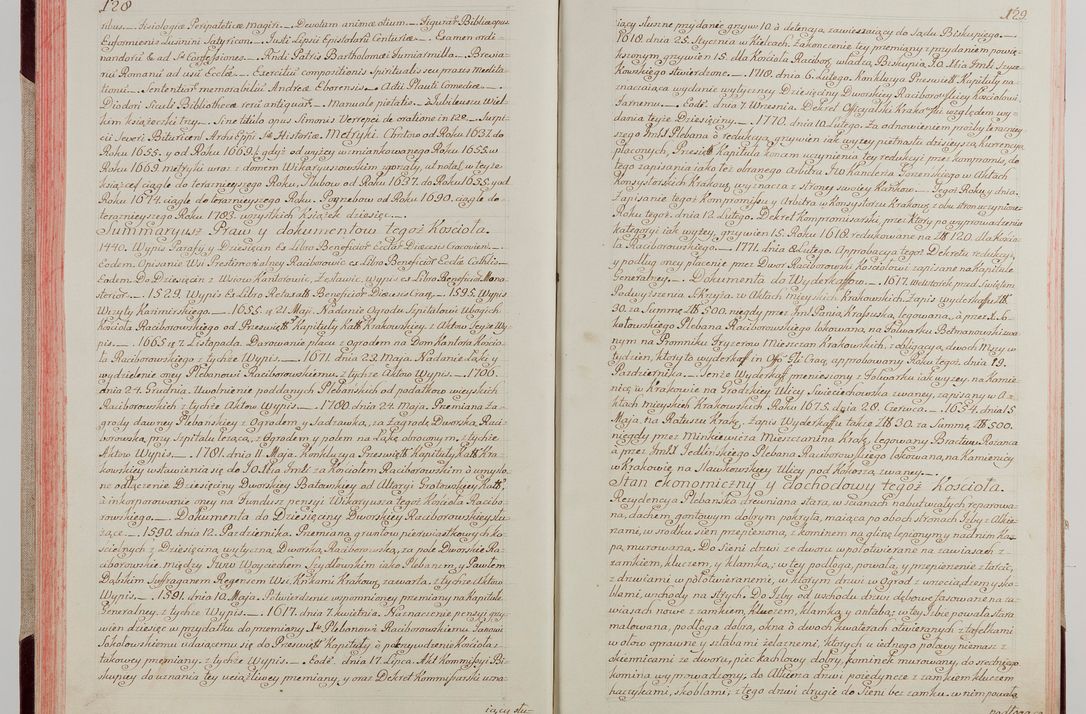 128
ribus. — Fisiologia Peripateticæ magiri. — Devotam animæ otium. — Figuræ Biblicæ opus
Euformienis Lusnini Satyricon. — Justi Lipsii Epistolarũ Centuriæ. — Examen ordi-
nandorũ & ad S. Confessiones. — Andi Patris Bartholomei Sumiarmilla. — Brevia-
riũ Romanũ ad usũ Ecclæ. — Exercitiũ compositionis Spiritualis seu praxis Medita-
tionũ. — Sententiæ memorabiliũ Andreæ Eborensis. — Actii Plauti Comediæ. —
Diodori Siculi Bibliothecæ rerũ antiquarũ. — Manuale pietatis. — o Jubileuszu Wiel-
kim książeczki trzy. — Sine titulo opus Simonis Verrepei de oratione in 12º. — Surpi-
cii Severi Bituricens. Archi Eppi S. Historiæ. Metryki. Chrztow od Roku 1631. do
Roku 1655. y od Roku 1669. gdyż od wyżey wzmiankowanego Roku 1655. w
Roku 1669. metryki wraz z domem Wikaryuszowskim zgorzały, ut notat. w teyże
księdze ciągle do teraznieyszego Roku. Slubow od Roku 1637. do Roku 1655. y od
Roku 1674. ciągle do teraznieyszego Roku. Pogrzebow od Roku 1690. ciągle do
teraznieyszego Roku 1783. wszystkich Książek dziesięć. —
Summaryusz Praw y dokumentow tegoż Kościoła.
1440. Wypis Parafy y Dziesięcin Ex Libro Beneficiorũ Ecclæ Dioecesis Cracovien. —
Eodem. Opisanie Wsi Prestimonialney Raciborowic ex Libro Beneficior. Ecclæ Cathlis. —
Eadem. Do Dziesięcin z Wsiow Kantorowic, Zesławic, wypis ex Libro Beneficior. Mona-
sterior. — 1529. Wypis Ex Libro Retaxatæ Beneficior. Dioecesis Crac. — 1595. Wypis
Wizyty Kazimirskiego. — 1655. d. 21 Maji. Nadanie Ogrodu Szpitalowi Ubogich
Kościoła Raciborowskiego od Prześwietney Kapituły Kath. Krakowskiey, z Aktow Jeyże Wy-
pis. — 1665. d. 7. Listopada. Darowanie placu z ogrodem na Dom Kantora Kościo-
ła Raciborowskiego z tychże Wypis. — 1671. dnia 23. Maja. Nadanie Łąki y
wydzielenie oney Plebanowi Raciborowskiemu z tychże Aktow Wypis. — 1706.
dnia 24. Grudnia. Uwolnienie poddanych Plebańskich od podatkow wieyskich
Raciborowskich z tychże Aktow Wypis. — 1780. dnia 24. Maja. Premiana Za-
grody dawney Plebańskiey z Ogrodem y Sadzawką, za Zagrodę Dworską Raci-
borowską, przy Szpitalu leżącą, z Ogrodem y polem na Łąkę obroconym z tychże
Aktow Wypis. — 1781. dnia 11. Maja. Konkluzya Prześwietney Kapituły Kath. Kra-
kowskiey wstawienia się do JO. Mia Jmci za Kościołem Raciborowskim o umyślo-
ne odłączenie Dziesięciny Dworskiey Batowskiey od Altaryi Gratowskiey Kath.
à inkorporowanie oney na Fundusz pensyi Wikaryusza tegoż Kościoła Racibo-
rowskiego. — Dokumenta do Dziesięciny Dworskiey Raciborowskiey słu-
żące. — 1590. dnia 12. Października. Premiana gruntow pierwiastkowych ko-
ścielnych z Dziesięciną wytyczną, Dworską, Raciborowską, za pole Dworskie Ra-
ciborowskie między Jmw Woyciechem Szydłowskim jako Plebanem, y Pawłem
Dąbskim Suffraganem Regensem Wsi, Xsikami Krakow. zawarta, z tychże Aktow
Wypis. — 1591. dnia 10. Maja. Potwierdzenie wspomnioney premiany na kapitule
Generalney, z tychże Wypis. — 1617. dnia 7. kwietnia. Naznaczenie pensyi grzy-
wien dziesięć w przydatku do premiany Je Plebanowi Raciborowskiemu Janowi
Sokołowskiemu udawaiącemu się do Prześwietney Kapituły o pokrzywdzenie Kościoła z
takowey premiany, z tychże Wypis. — Eodẽ. dnia 17. Lipca. Akt Kommissyi Bi-
skupiey do uznania tey uciążliwey premiany, y oraz Dekret Kommissarski uzna-
iący słu-
129
iący słuszne przydanie grzyw. 10. à detencyą zawieszaiący do Sądu Biskupiego. —
1618. dnia 25. Stycznia w Kielcach. Zakończenie tey premiany z przydaniem powię-
kszonym grzywien 15. dla Kościoła Racibor. władzą Biskupią JO. Mia Jmci Szysz-
kowskiego stwierdzone. — 1718. dnia 6. Lutego. Konkluzya Prześwietney Kapituły na-
znaczaiąca wydanie wytyczney Dziesięciny Dworskiey Raciborowskiey Kościołowi
Farnemu. — Eodẽ. dnia 7. Września. Dekret Officyalski Krakowski względem wy-
dania teyże Dziesięciny. — 1770. dnia 10. Lutego. Za odnowieniem prozby teraźniey-
szego Jmci Plebana o redukcyą grzywien iak wyżey piętnastu dzisieyszą kurrencyą
płaconych, Prześw. Kapituła końcem uczynienia tey redukcyi przez kompromis, do
tego zapisania iako też obranego Arbitra JW Kanclerza Gorzeńskiego w Aktach
Konsystorskich Krakow. wyznacza z strony swoiey Kanonikow. — Tegoż Roku y dnia.
Zapisanie tegoż Kompromissu y Arbitra w Konsystorzu Krakow. z obu stron uczynione.
Roku tegoż dnia 12. Lutego. Dekret Kompromisarski, przez ktory po wyprowadzeniu
kategoryi iak wyżey, grzywien 15. Roku 1618. redukowane na Zł. 120. dla Kościo-
ła Raciborowskiego. — 1771. dnia 8. Lutego. Approbacya tegoż Dekretu redukcyi,
y podług oney płacenie przez Dwor Raciborowski Kościołowi zapisane na Kapitule
Generalney. — Dokumenta do Wyderkaffow. — 1677. we Wtorek przed Świętem
Podwyższenia S. Krzyża, w Aktach mieyskich Krakowskich, Zapis wyderkaffu Zł.
30. za Summę Zł. 500. niegdy przez Jmci Panią Krasuską legowaną, à przez X. S-
kotowskiego Plebana Raciborowskiego lokowaną, na Folwarku Betmanowskim zwa-
nym na Promniku Fryzerow Mieszczan Krakowskich, z obligacyą dwoch Mszy w
tydzień, ktory to wyderkaff in Offo Gli. Crac. approbowany. Roku tegoż dnia 19.
Października. — Tenże Wyderkaff przeniesiony z Folwarku iak wyżey, na Kamie-
nicę w Krakowie na Grodzkiey Ulicy Swieciechowska zwaney, zapisany w A-
ktach mieyskich Krakowskich Roku 1675. dnia 28. Czerwca. — 1654. dnia 15.
Maja, na Ratuszu Krak. Zapis Wyderkaffu także Zł. 30. za Summę Zł. 500.
niegdy przez Minkiewicza Mieszczanina Krak. legowany Bractwu Rożańca
à przez Jmci Jedlińskiego Plebana Raciborowskiego lokowaną, na Kamienicy
w Krakowie, na Sławkowskiey Ulicy pod Kokoszą zwaney. —
Stan ekonomiczny y dochodowy tegoż Kościoła.
Rezydencya Plebańska drewniana stara, w ścianach nabutwiałych reparowa-
na, dachem gontowym dobrym pokryta, maiąca po oboch stronach Izby z Alkie-
rzami, w środku sień przepierzoną, z kominem na glinę lepionym y nad nim ka-
pa, murowana. Do Sieni drzwi ze dworu w poł otwierane na zawiasach z
zamkiem, kluczem, y klamką; w tey podłoga, powała, y przepierzenie z tarcic,
z drzwiami w poł otwieranemi, w ktorym drzwi w Ogrod z wrzeciądzem y sko-
blami, wschody na strych. Do Izby od wschodu drzwi dębowe fasowane na za-
wiasach nowe z zamkiem, kluczem, klamką, y antabą; w tey Izbie powała stara
malowana, podłoga dobra, okna o dwoch kwaterach otwieranych z tafelkami
w ołow oprawne y sztabami żelaznemi, ktorych u iednego połowy niemasz z
okiennicami ze dworu, piec kachlowy dobry, kominek murowany, do średniego
komina wyprowadzony, do Alkierza drzwi poiedyncze z zamkiem kluczem
haczykami, skoblami, z tego drzwi drugie do Sieni bez zamku. w nim powała
podłoga